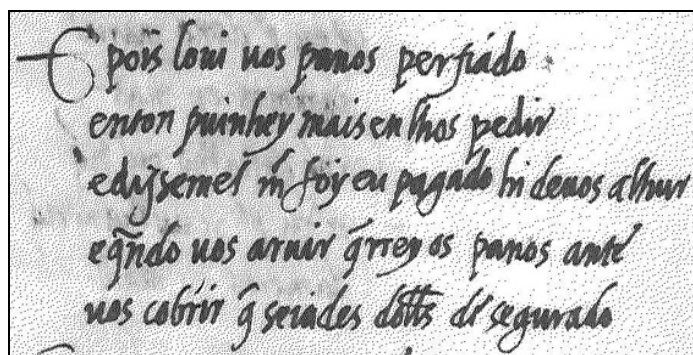 E pois loui uos panos perfiado
enton puinhey mais en lhos pedir
e dysemel m̃ foy eu pagado hi deuos alhur
e q̃ndo uos aruir q̃rrey os panos ante
uos cobrir q̃ seiades segurado